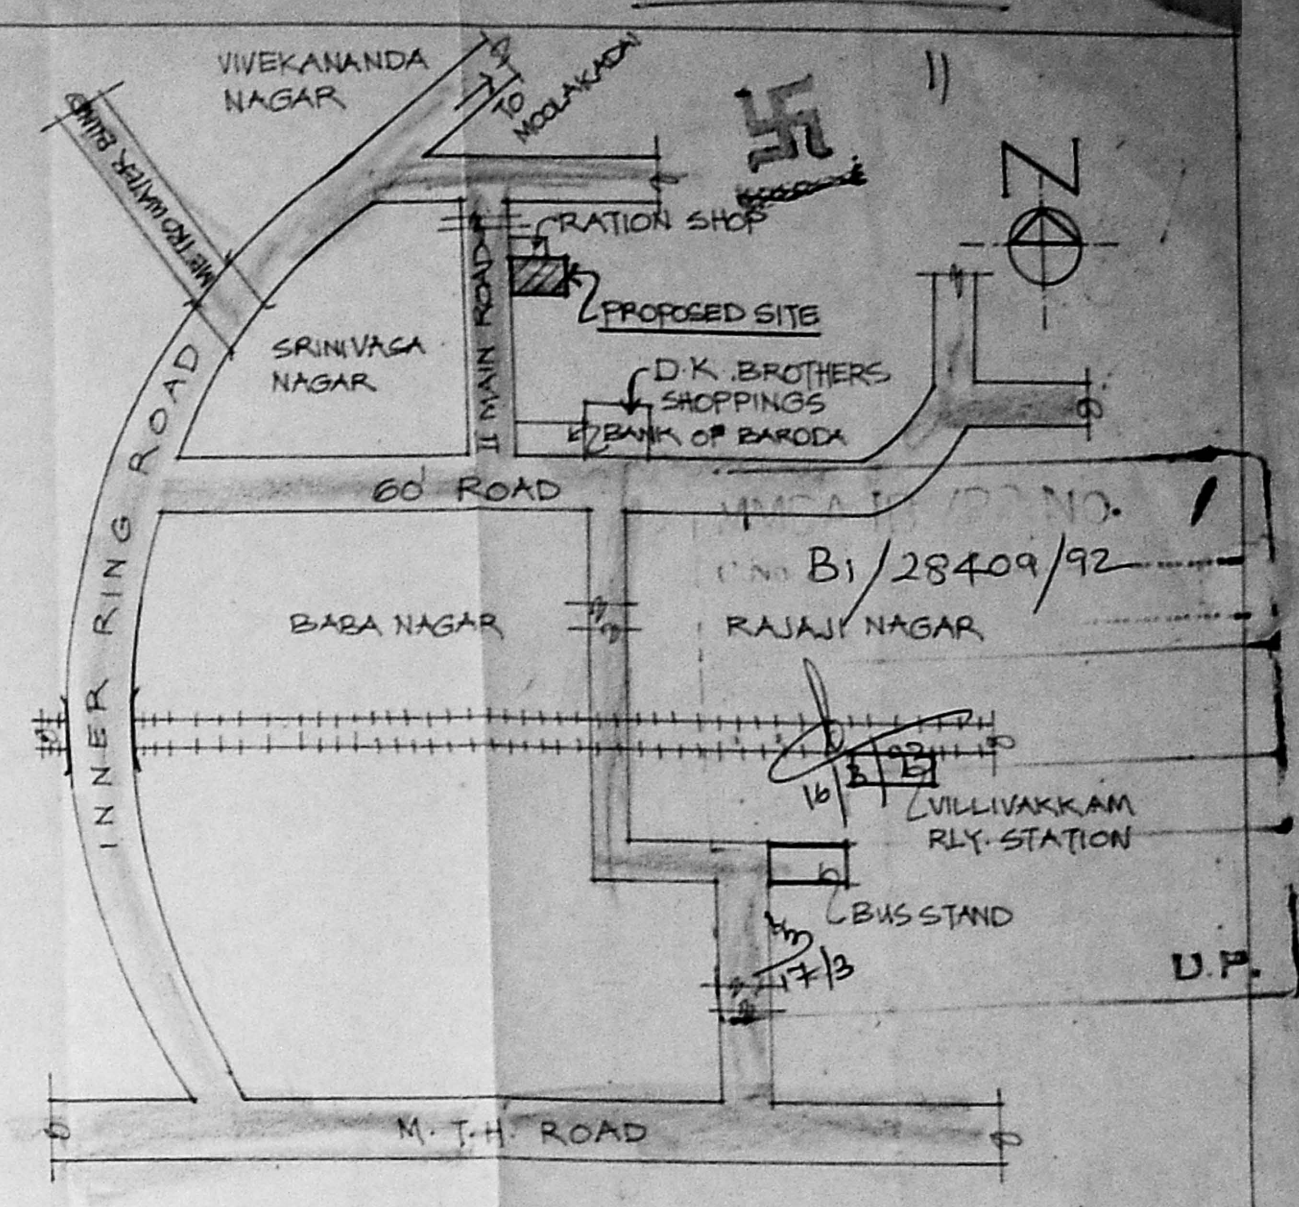 VIVEKANANDA
NAGAR
TO
MOOLAKADAI
1)
N
METROWATER BUND
RATION SHOP
PROPOSED SITE
II MAIN ROAD
SRINIVASA
NAGAR
D.K. BROTHERS
SHOPPINGS
BANK OF BARODA
60' ROAD
INNER RING ROAD
NO.
B1/28409/92
BABA NAGAR
RAJAJI NAGAR
16
VILLIVAKKAM
RLY. STATION
BUS STAND
17/3
U.P.
M.T.H. ROAD